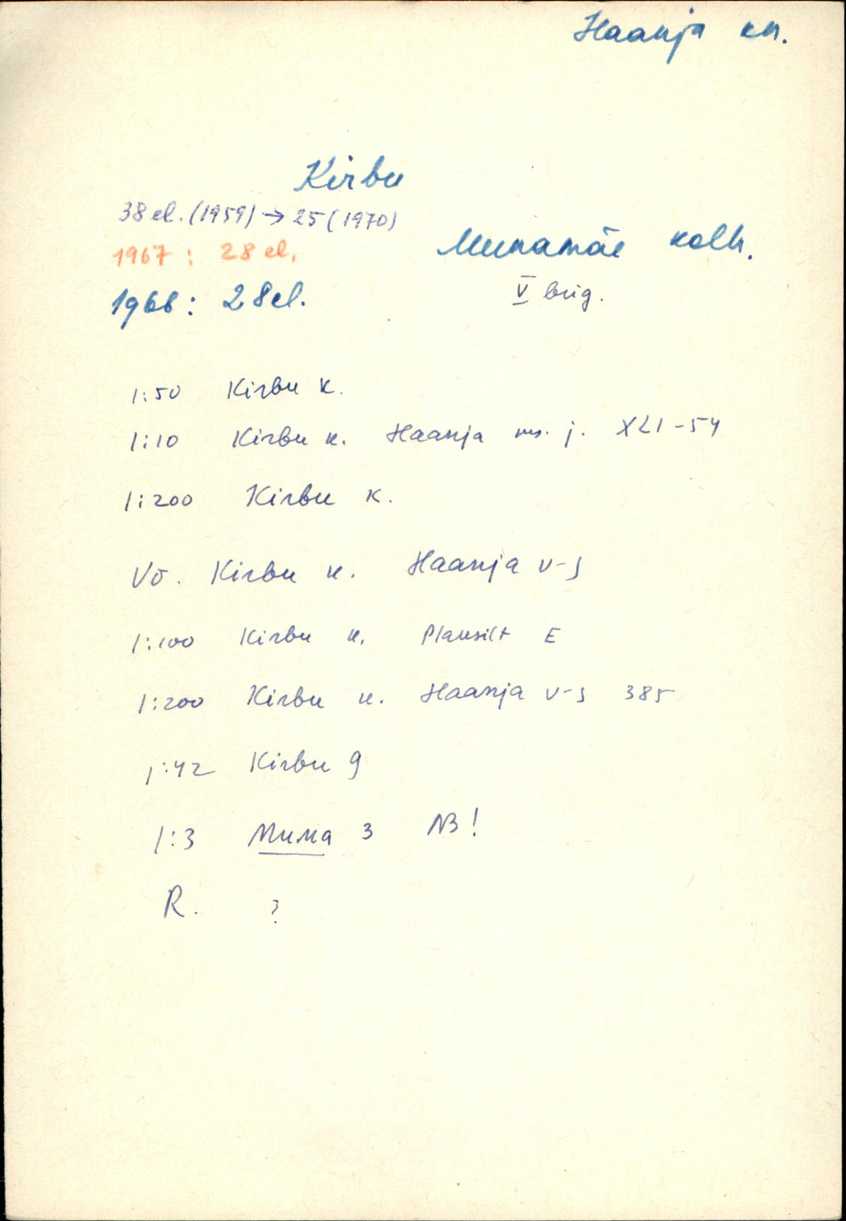 Haanja kn.
Kirbu
38 el. (1959) → 25 (1970)
1967: 28 el.
Munamäe kolh.
1966: 28 el.
V brig.
1:50 Kirbu k.
1:10 Kirbu k. Haanja ms. j. XLI-54
1:200 Kirbu k.
Võ. Kirbu k. Haanja v-s
1:100 Kirbu k. Plansilt E
1:200 Kirbu k. Haanja v-s 385
1:42 Kirbu 9
1:3 Мииа 3 NB!
R. ?